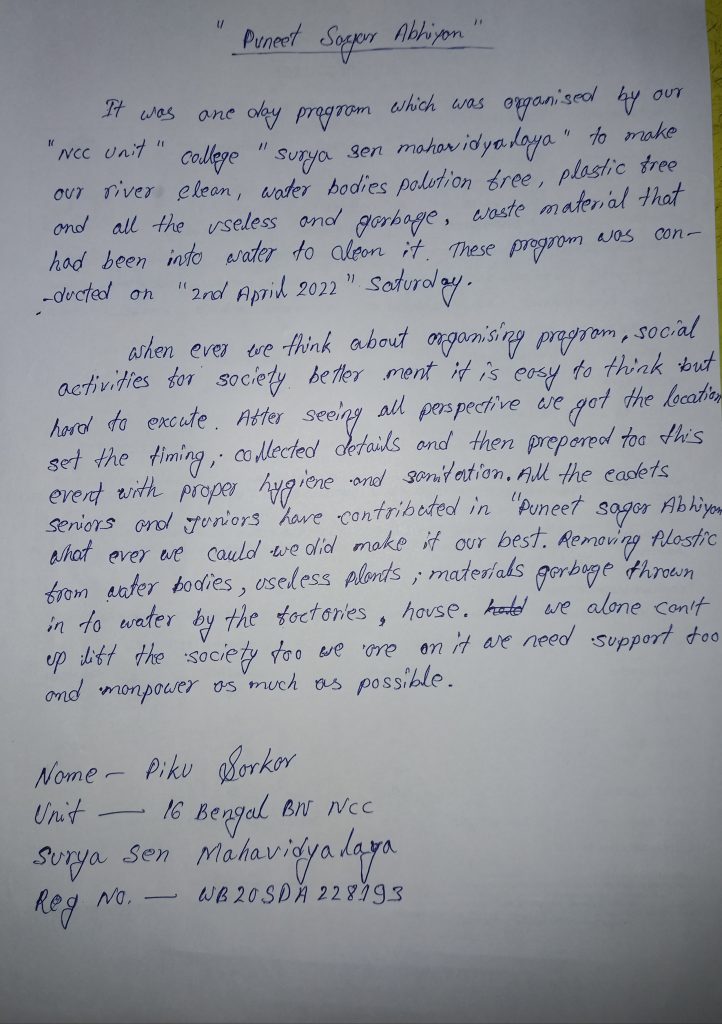 " Puneet Sagar Abhiyan "
It was one day program which was organised by our
" NCC Unit " college " surya sen mahavidyalaya " to make
our river clean, water bodies polution free, plastic free
and all the useless and garbage, waste material that
had been into water to clean it. These program was con-
-ducted on "2nd April 2022" Saturday.
when ever we think about organising program, social
activities for society better ment it is easy to think but
hard to excute. After seeing all perspective we got the location
set the timing, collected details and then prepared too this
event with proper hygiene and sanitation. All the cadets
seniors and juniors have contributed in "Puneet sagar Abhiyan
what ever we could we did make it our best. Removing Plastic
from water bodies, useless plants, materials garbage thrown
in to water by the factories, house. we alone can't
up lift the society too we are on it we need support too
and manpower as much as possible.
Name - Piku Sarkar
Unit - 16 Bengal BN NCC
Surya Sen Mahavidyalaya
Reg No. - WB20SDA228193